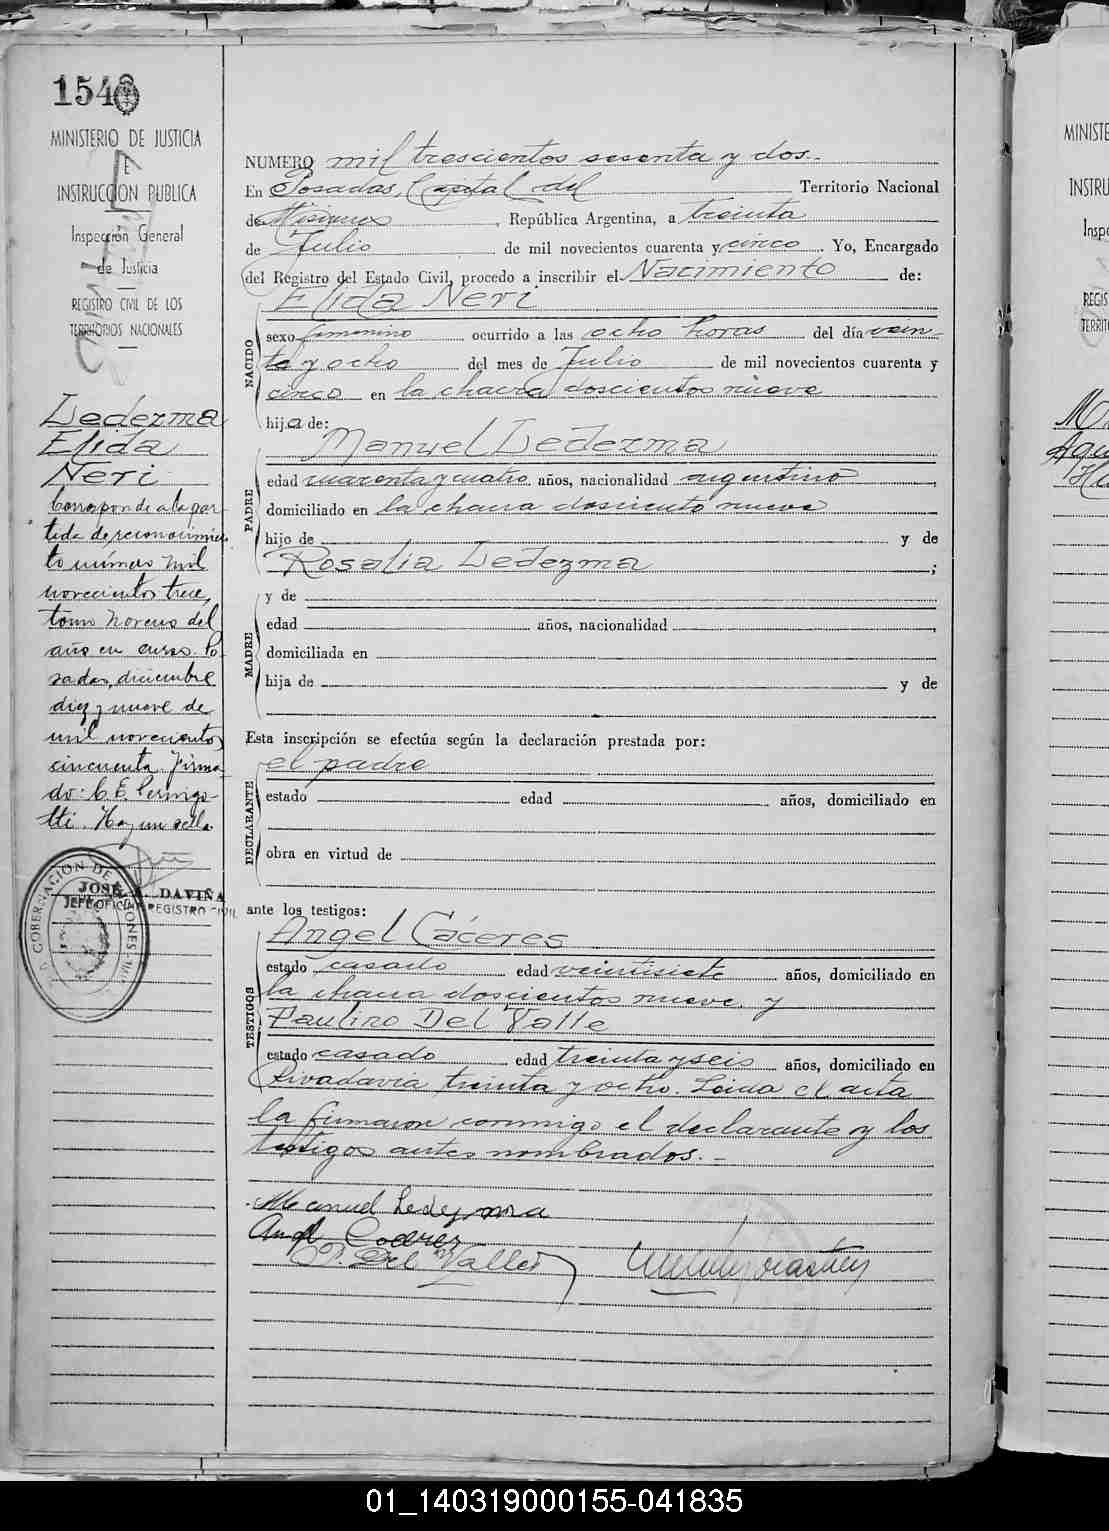 1548
MINISTERIO DE JUSTICIA
E
INSTRUCCION PUBLICA
Inspección General
de Justicia
REGISTRO CIVIL DE LOS
TERRITORIOS NACIONALES
Ledezma
Elida
Neri
Corresponde a la par-
tida de reconocimien
to número mil
novecientos trece,
tomo noveno del
año en curso. Po
sadas, diciembre
diez y nueve de
mil novecientos
cincuenta. Firma
do: C. E. Pernigo-
tti. Hay un sello.
JOSÉ A. DAVIÑA
JEFE OFICINA REGISTRO CIVIL
GOBERNACION DE MISIONES
NUMERO mil trescientos sesenta y dos.-
En Posadas, Capital del Territorio Nacional
de Misiones, República Argentina, a treinta
de Julio de mil novecientos cuarenta y cinco. Yo, Encargado
del Registro del Estado Civil, procedo a inscribir el Nacimiento de:
Elida Neri
NACIDO
sexo femenino ocurrido a las ocho horas del día vein-
te y ocho del mes de Julio de mil novecientos cuarenta y
cinco en la chacra doscientos nueve
hija de:
Manuel Ledezma
PADRE
edad cuarenta y cuatro años, nacionalidad argentino,
domiciliado en la chacra doscientos nueve
hijo de y de
Rosalia Ledezma;
MADRE
y de
edad años, nacionalidad,
domiciliada en
hija de y de
Esta inscripción se efectúa según la declaración prestada por:
el padre
DECLARANTE
estado edad años, domiciliado en
obra en virtud de
ante los testigos:
Angel Cáceres
TESTIGOS
estado casado edad veintisiete años, domiciliado en
la chacra doscientos nueve y
Paulino Del Valle
estado casado edad treinta y seis años, domiciliado en
Rivadavia treinta y ocho. Leida el acta
la firmaron conmigo el declarante y los
testigos antes nombrados.-
Manuel Ledezma
Angel Caceres
P. Del Valle
MINISTE
INSTRU
Inspe
REGIS
TERRIT
01_140319000155-041835